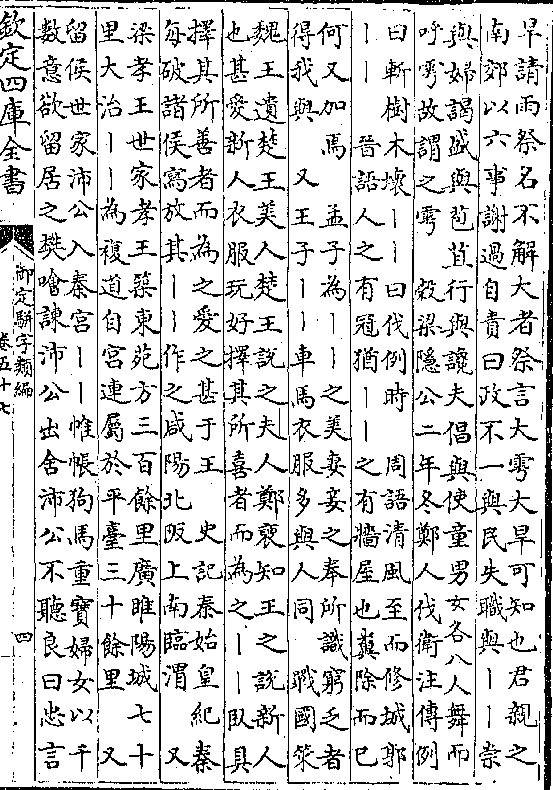 旱請雨祭名不解大者祭言大雩大旱可知也君親之
南郊以六事謝過自責曰政不一與民失職與丨丨崇
與婦謁盛與苞苴行與讒夫倡與使童男女各八人舞而
呼雩故謂之雩　穀梁隱公二年冬鄭人伐衛注傳例
曰斬樹木壞丨丨曰伐例時　周語清風至而修城郭
丨丨　晉語人之有冠猶丨丨之有牆屋也糞除而已
何又加焉　孟子為丨丨之美妻妾之奉所識窮乏者
得我與　又王子丨丨車馬衣服多與人同　戰國策
魏王遺楚王美人楚王說之夫人鄭褏知王之說新人
也甚愛新人衣服玩好擇其所喜者而為之丨丨臥具
擇其所善者而為之愛之甚于王　史記秦始皇紀秦
每破諸侯寫放其丨丨作之咸陽北阪上南臨渭　又
梁孝王世家孝王築東苑方三百餘里廣睢陽城七十
里大治丨丨為複道自宮連屬於平臺三十餘里　又
留侯世家沛公入秦宮丨丨帷帳狗馬重寶婦女以千
數意欲留居之樊噲諫沛公出舍沛公不聽良曰忠言
欽定四庫全書
御定駢字類編
卷五十七
四